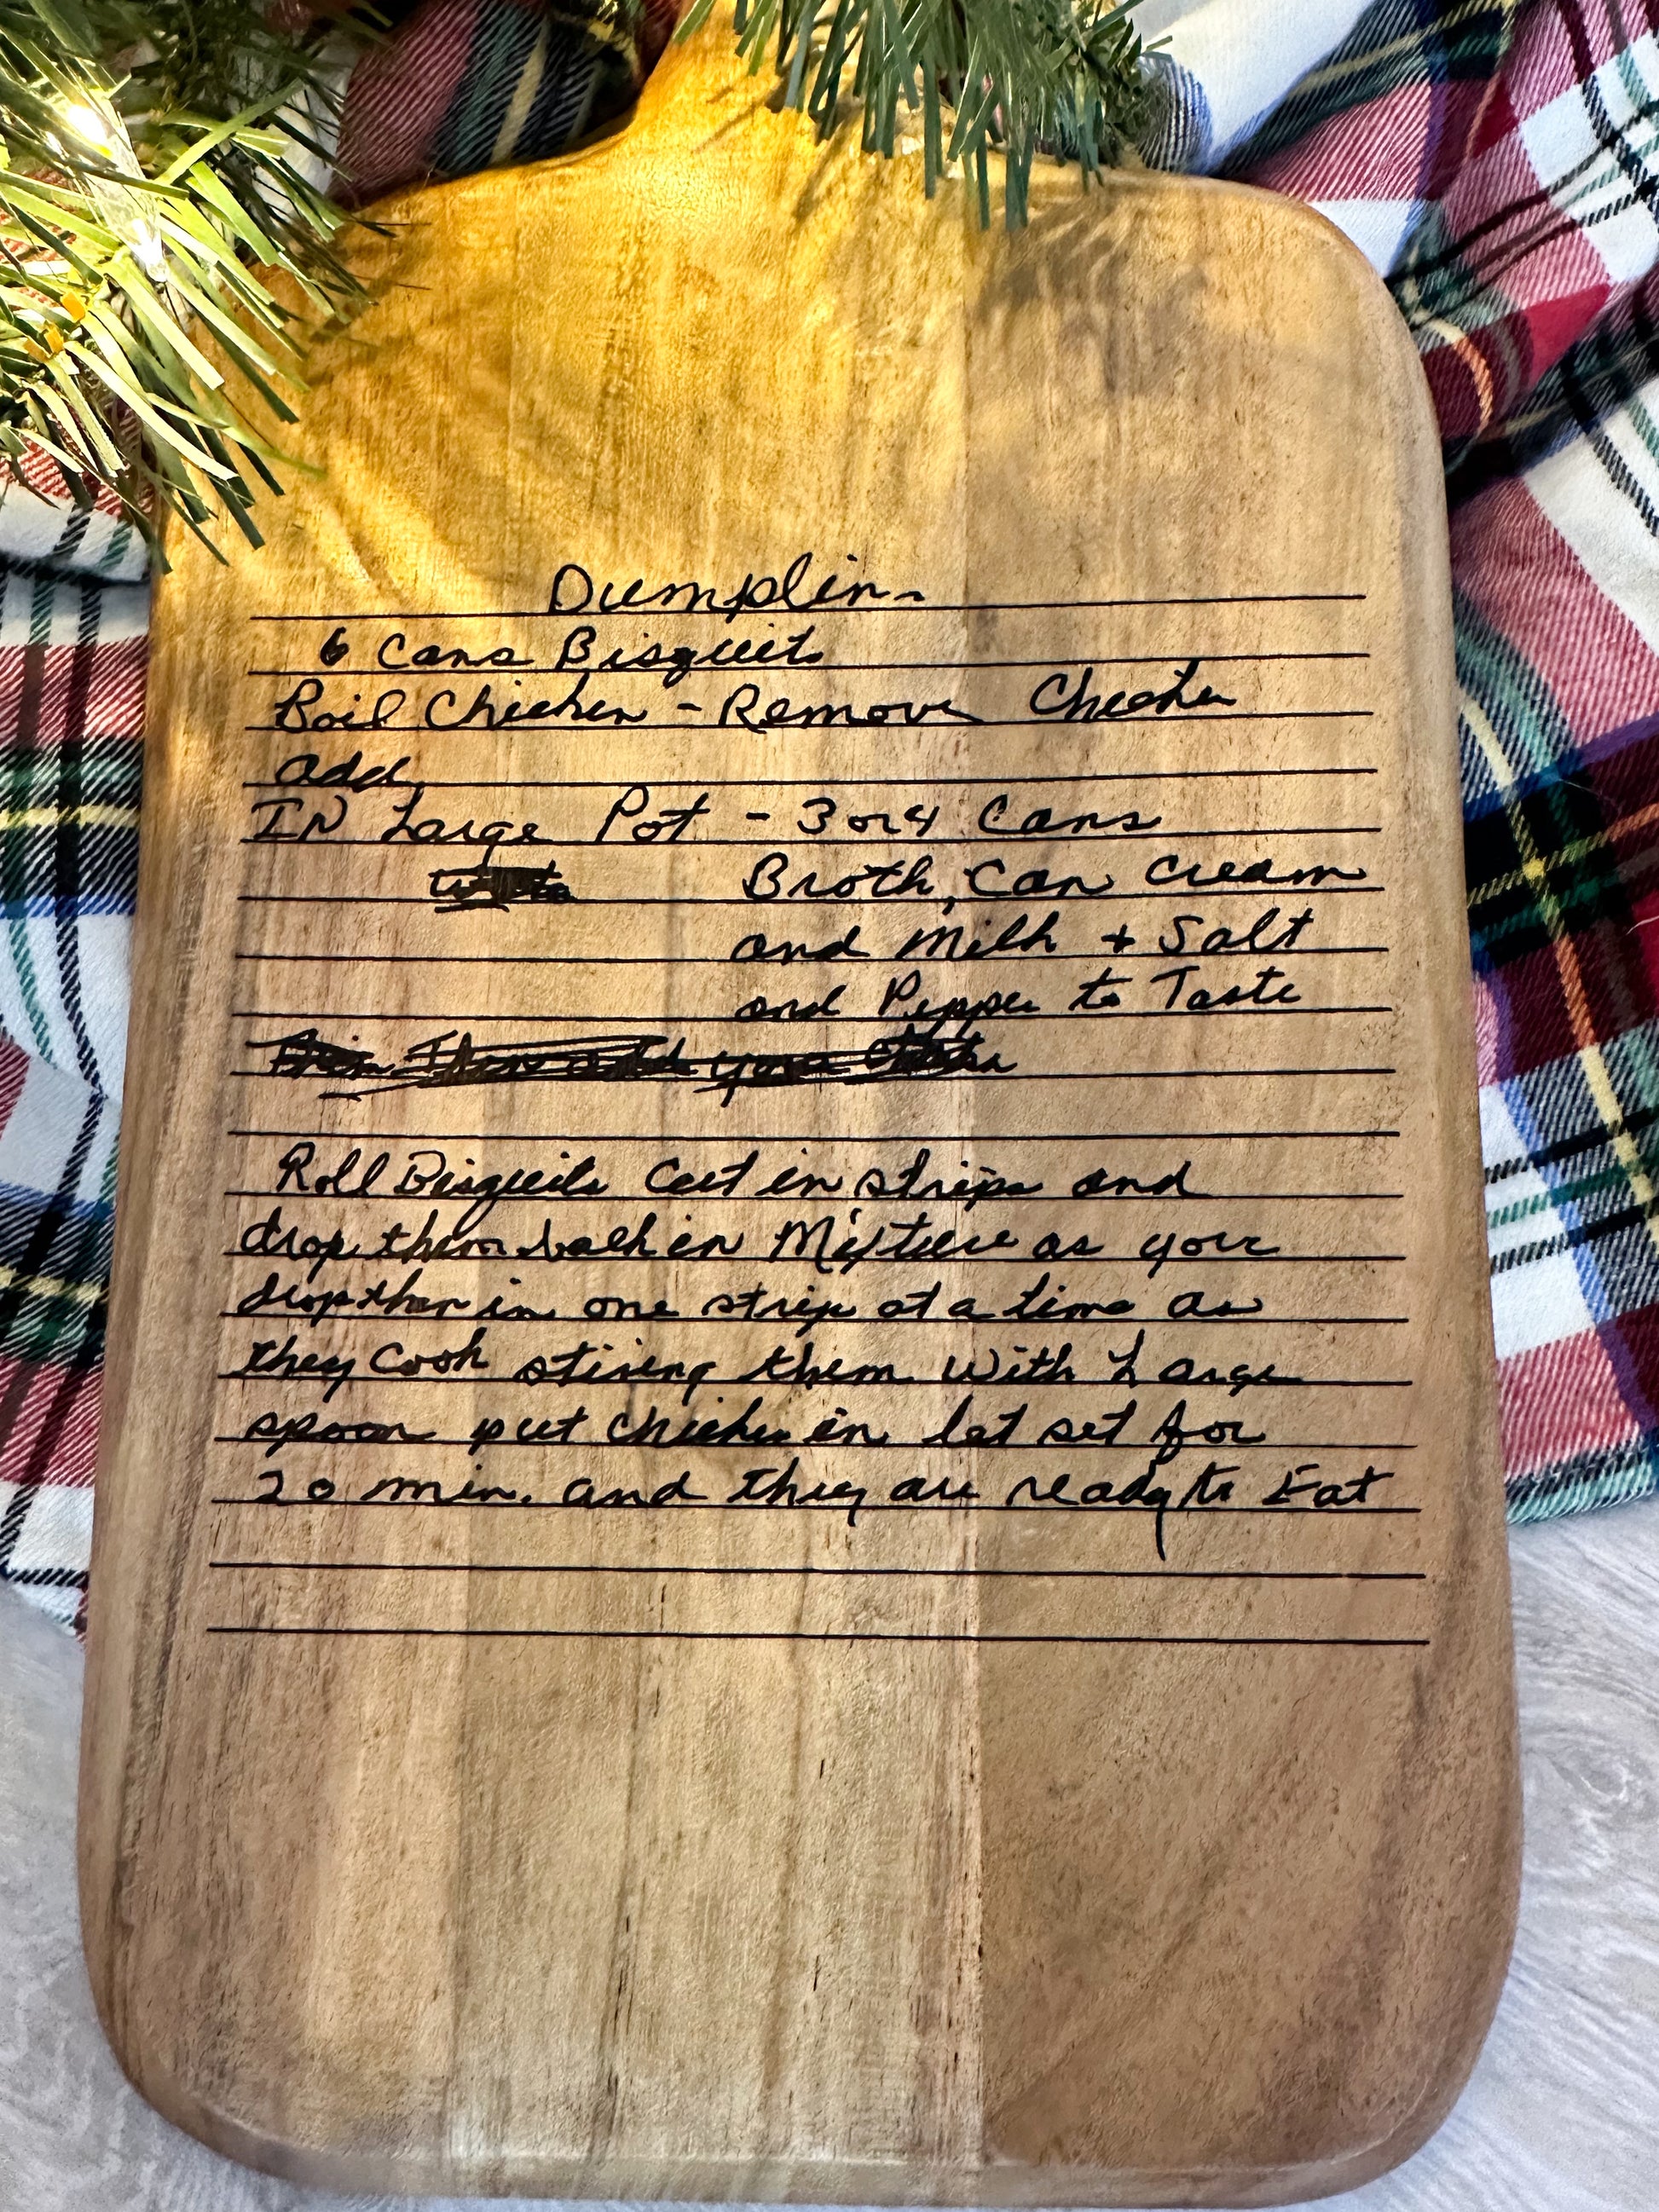 Dumplin
6 Cans Bisquits
Boil Chicken - Remove Chicken
add
IN Large Pot - 3 or 4 Cans
Broth, Can Cream
and Milk + Salt
and Pepper to Taste
Roll Bisquits Cut in strips and
drop them back in Mixture as your
drop them in one strip at a time as
they Cook stiring them With Large
spoon put chicken in let set for
20 min. and they are ready to Eat